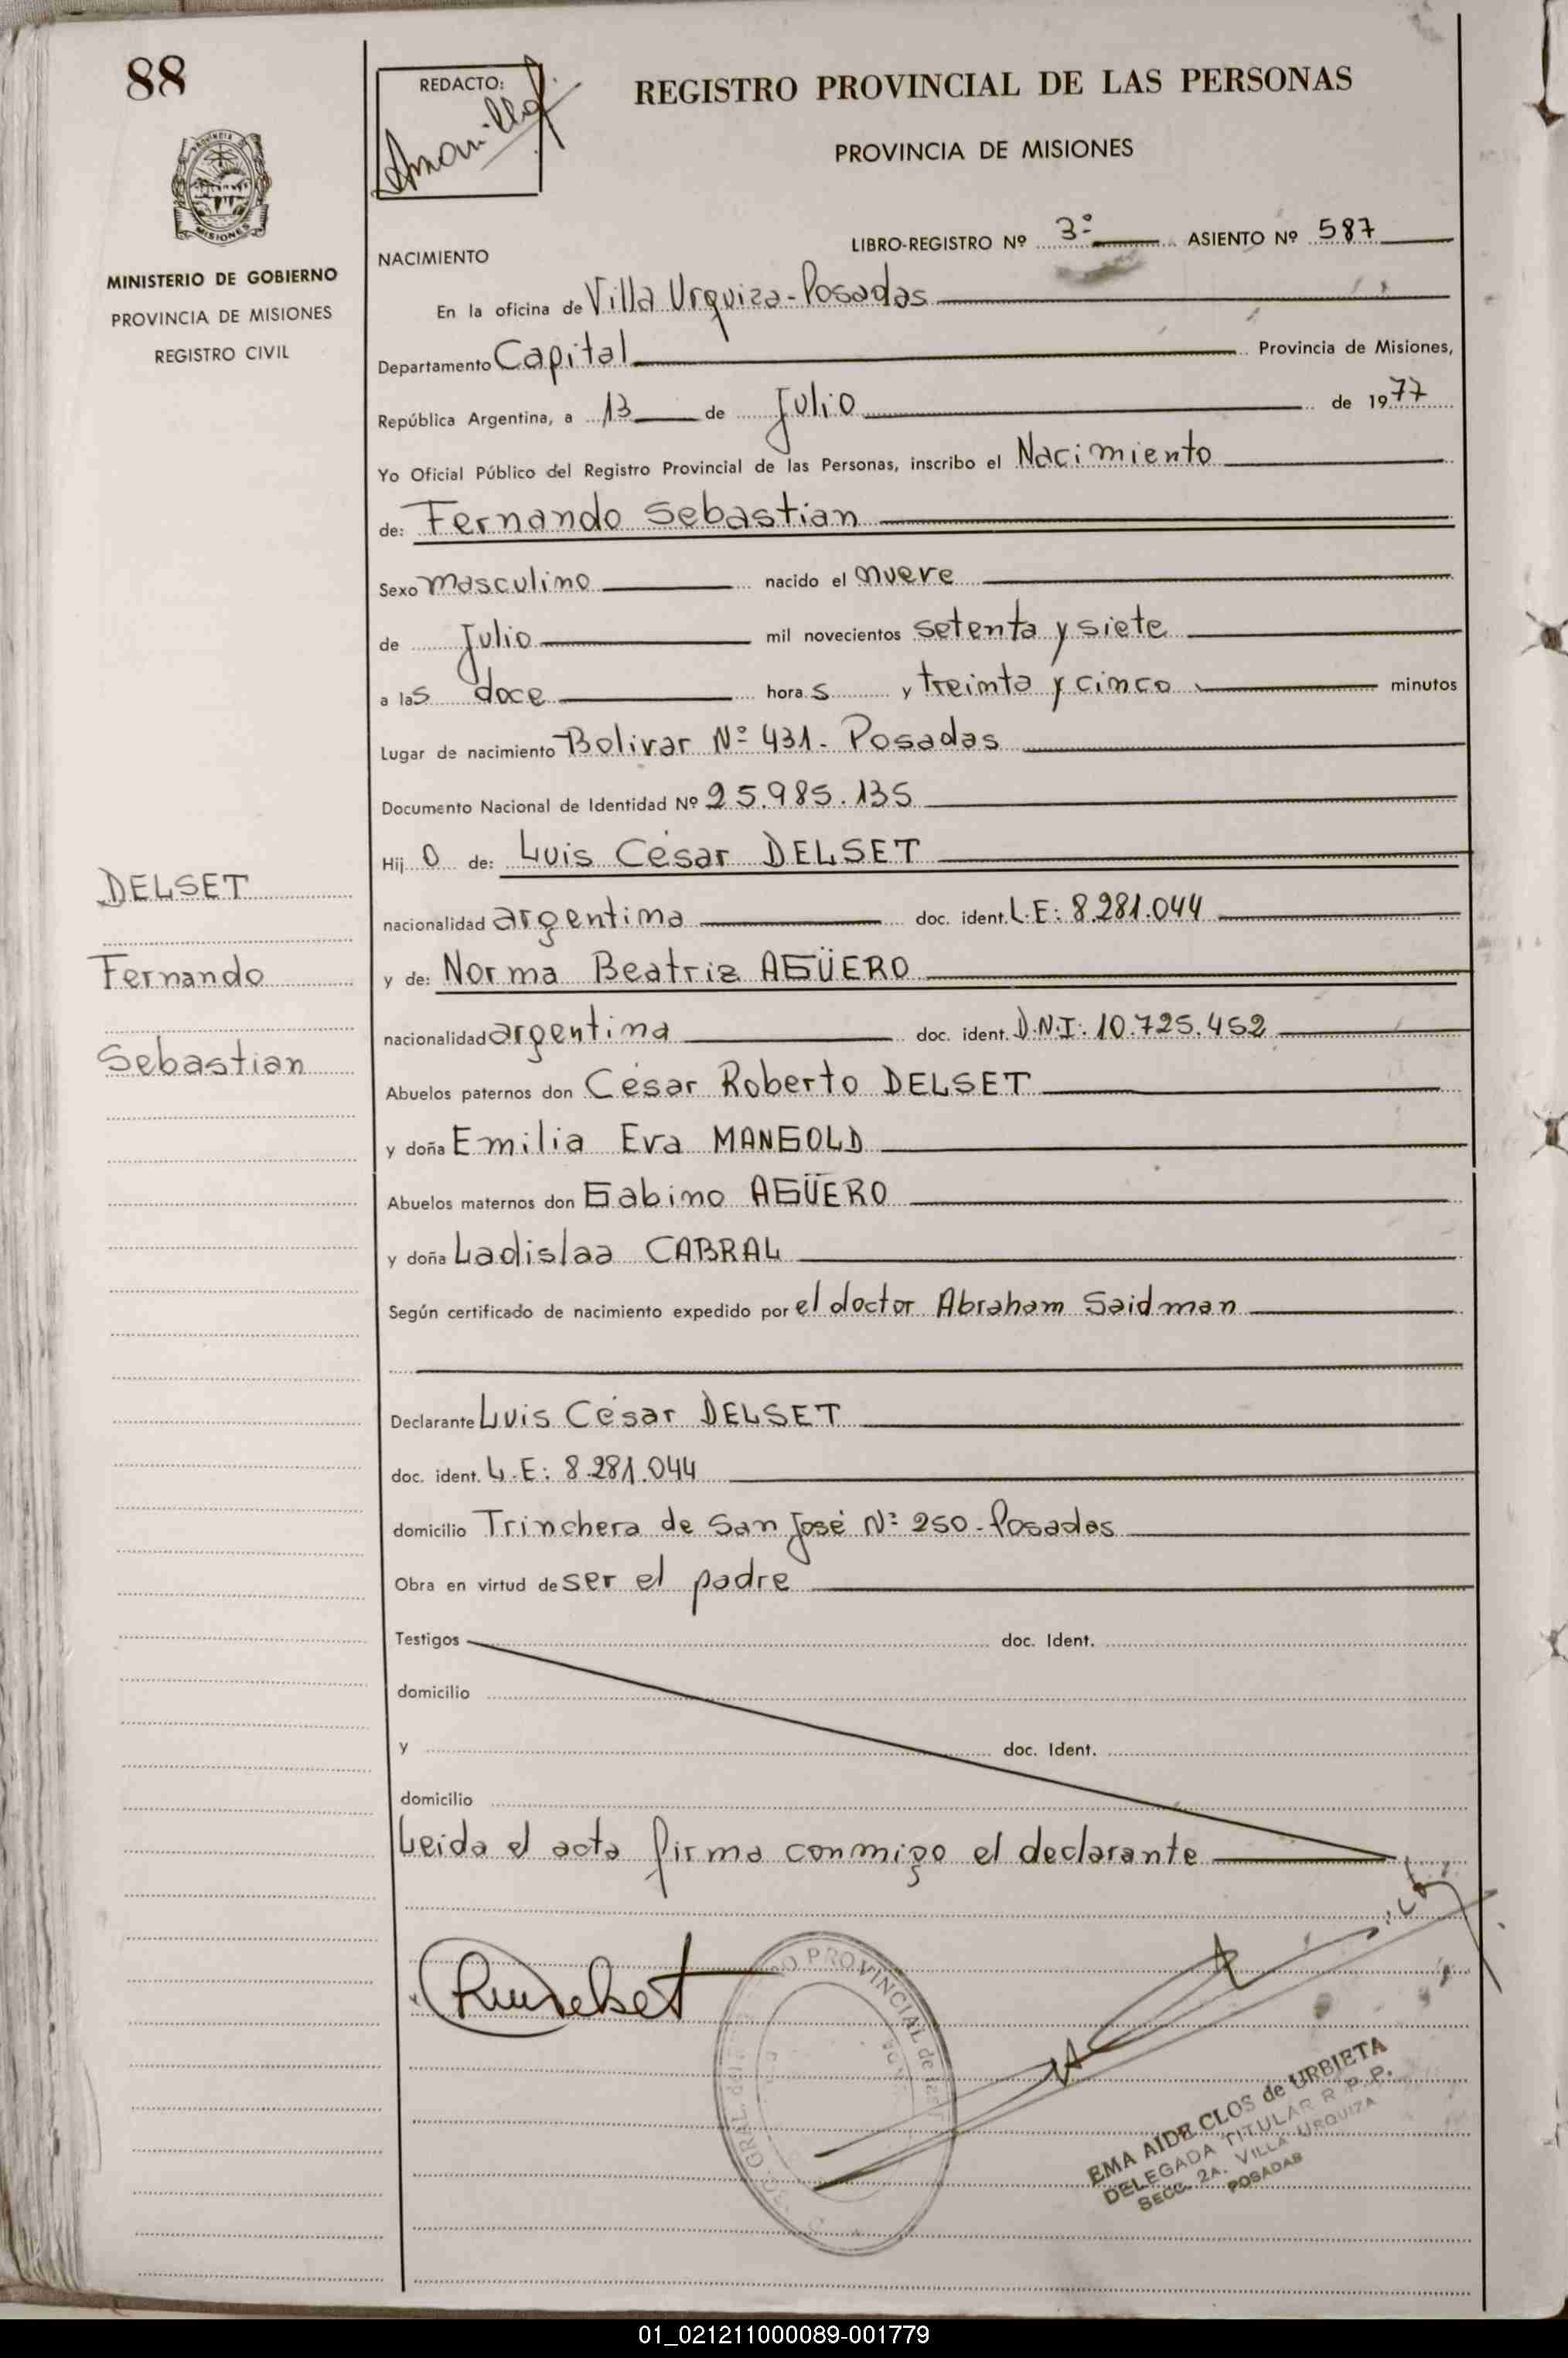 88
REDACTO:
REGISTRO PROVINCIAL DE LAS PERSONAS
PROVINCIA DE MISIONES
MISIONES
MINISTERIO DE GOBIERNO
PROVINCIA DE MISIONES
REGISTRO CIVIL
LIBRO-REGISTRO Nº 3º ASIENTO Nº 587
NACIMIENTO
En la oficina de Villa Urquiza-Posadas
Departamento Capital Provincia de Misiones,
República Argentina, a 13 de Julio de 1977
Yo Oficial Público del Registro Provincial de las Personas, inscribo el Nacimiento
de: Fernando Sebastian
Sexo masculino nacido el nueve
de Julio mil novecientos setenta y siete
a las doce horas y treinta y cinco minutos
Lugar de nacimiento Bolivar Nº 431- Posadas
Documento Nacional de Identidad Nº 25.985.135
Hijo de: Luis César DELSET
nacionalidad argentina doc. ident. L.E: 8.281.044
y de: Norma Beatriz AGÜERO
nacionalidad argentina doc. ident. D.N.I: 10.725.452
Abuelos paternos don César Roberto DELSET
y doña Emilia Eva MANGOLD
Abuelos maternos don Gabino AGÜERO
y doña Ladislaa CABRAL
Según certificado de nacimiento expedido por el doctor Abraham Saidman
Declarante Luis César DELSET
doc. ident. L.E: 8.281.044
domicilio Trinchera de San José Nº 250-Posadas
Obra en virtud de ser el padre
Testigos doc. Ident.
domicilio
y doc. Ident.
domicilio
Leida el acta firma conmigo el declarante
DELSET
Fernando
Sebastian
PROVINCIAL de las
EMA AIDE CLOS de URBIETA
DELEGADA TITULAR R.P.P.
SECC. 2A. VILLA URQUIZA
POSADAS
01_021211000089-001779